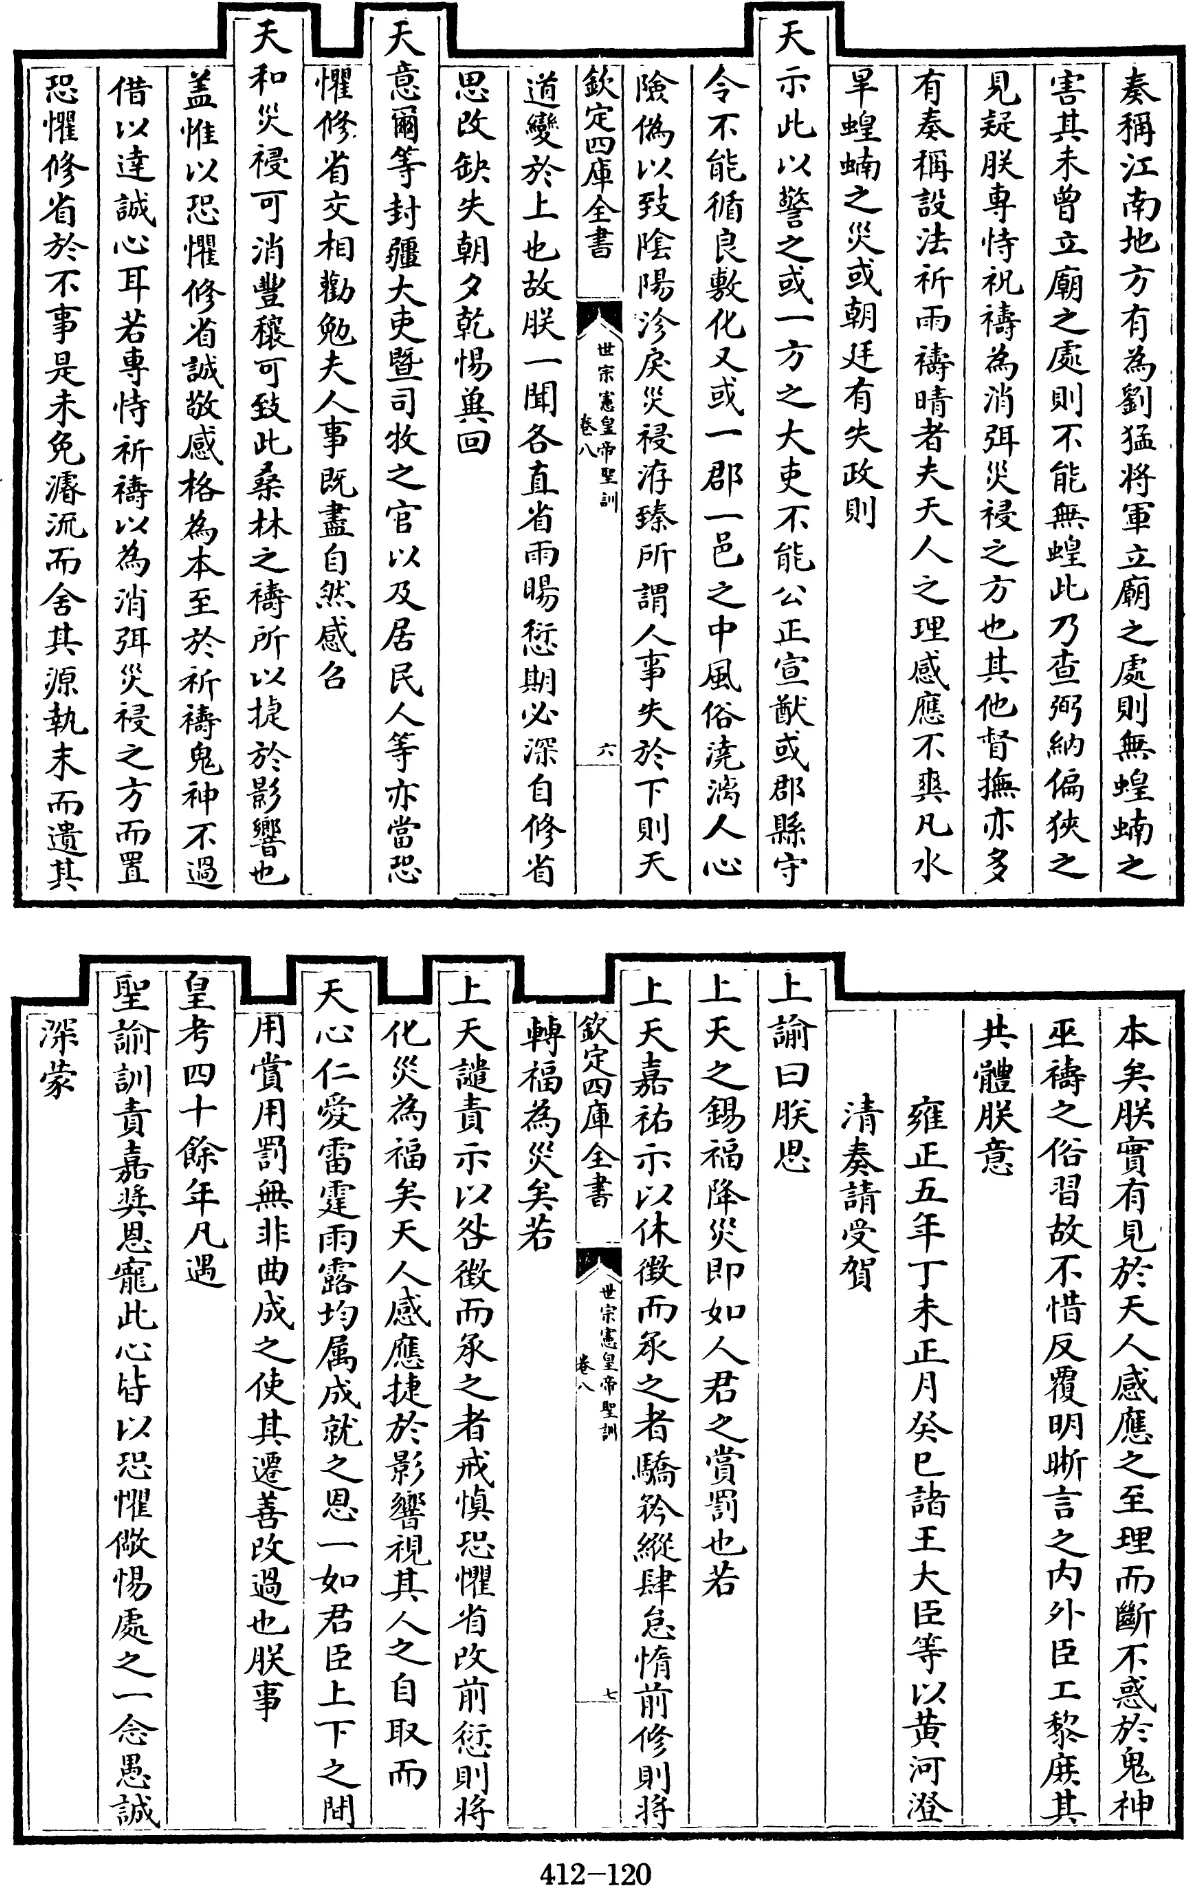 奏稱江南地方有為劉猛將軍立廟之處則無蝗蝻之
害其未曾立廟之處則不能無蝗此乃查弼納偏狹之
見疑朕専恃祝禱為消弭災祲之方也其他督撫亦多
有奏稱設法祈雨禱晴者夫天人之理感應不爽凡水
旱蝗蝻之災或朝廷有失政則
天示此以警之或一方之大吏不能公正宣猷或郡縣守
令不能循良敷化又或一郡一邑之中風俗澆漓人心
險偽以致陰陽沴戾災祲洊臻所謂人事失於下則天
欽定四庫全書
世宗憲皇帝聖訓
卷八
六
道變於上也故朕一聞各直省雨暘愆期必深自修省
思改缺失朝夕乾惕兾回
天意爾等封疆大吏暨司牧之官以及居民人等亦當恐
懼修省交相勸勉夫人事既盡自然感召
天和災祲可消豐穰可致此桑林之禱所以捷於影響也
盖惟以恐懼修省誠敬感格為本至於祈禱鬼神不過
借以達誠心耳若專恃祈禱以為消弭災祲之方而置
恐懼修省於不事是未免濬流而舍其源執末而遺其
本矣朕實有見於天人感應之至理而斷不惑於鬼神
巫禱之俗習故不惜反覆明晰言之内外臣工黎庶其
共體朕意
雍正五年丁未正月癸巳諸王大臣等以黄河澄
清奏請受賀
上諭曰朕思
上天之錫福降災即如人君之賞罰也若
上天嘉祐示以休徵而承之者驕矜縱肆怠惰前修則將
欽定四庫全書
世宗憲皇帝聖訓
卷八
七
轉福為災矣若
上天譴責示以咎徵而承之者戒慎恐懼省改前愆則將
化災為福矣天人感應捷於影響視其人之自取而
天心仁愛雷霆雨露均属成就之恩一如君臣上下之間
用賞用罰無非曲成之使其遷善改過也朕事
皇考四十餘年凡遇
聖諭訓責嘉奬恩寵此心皆以恐懼儆惕處之一念愚誠
深蒙
412-120